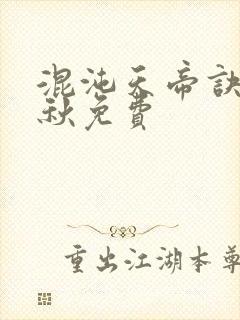 混沌天帝訣
秋免費
重出江湖本尊